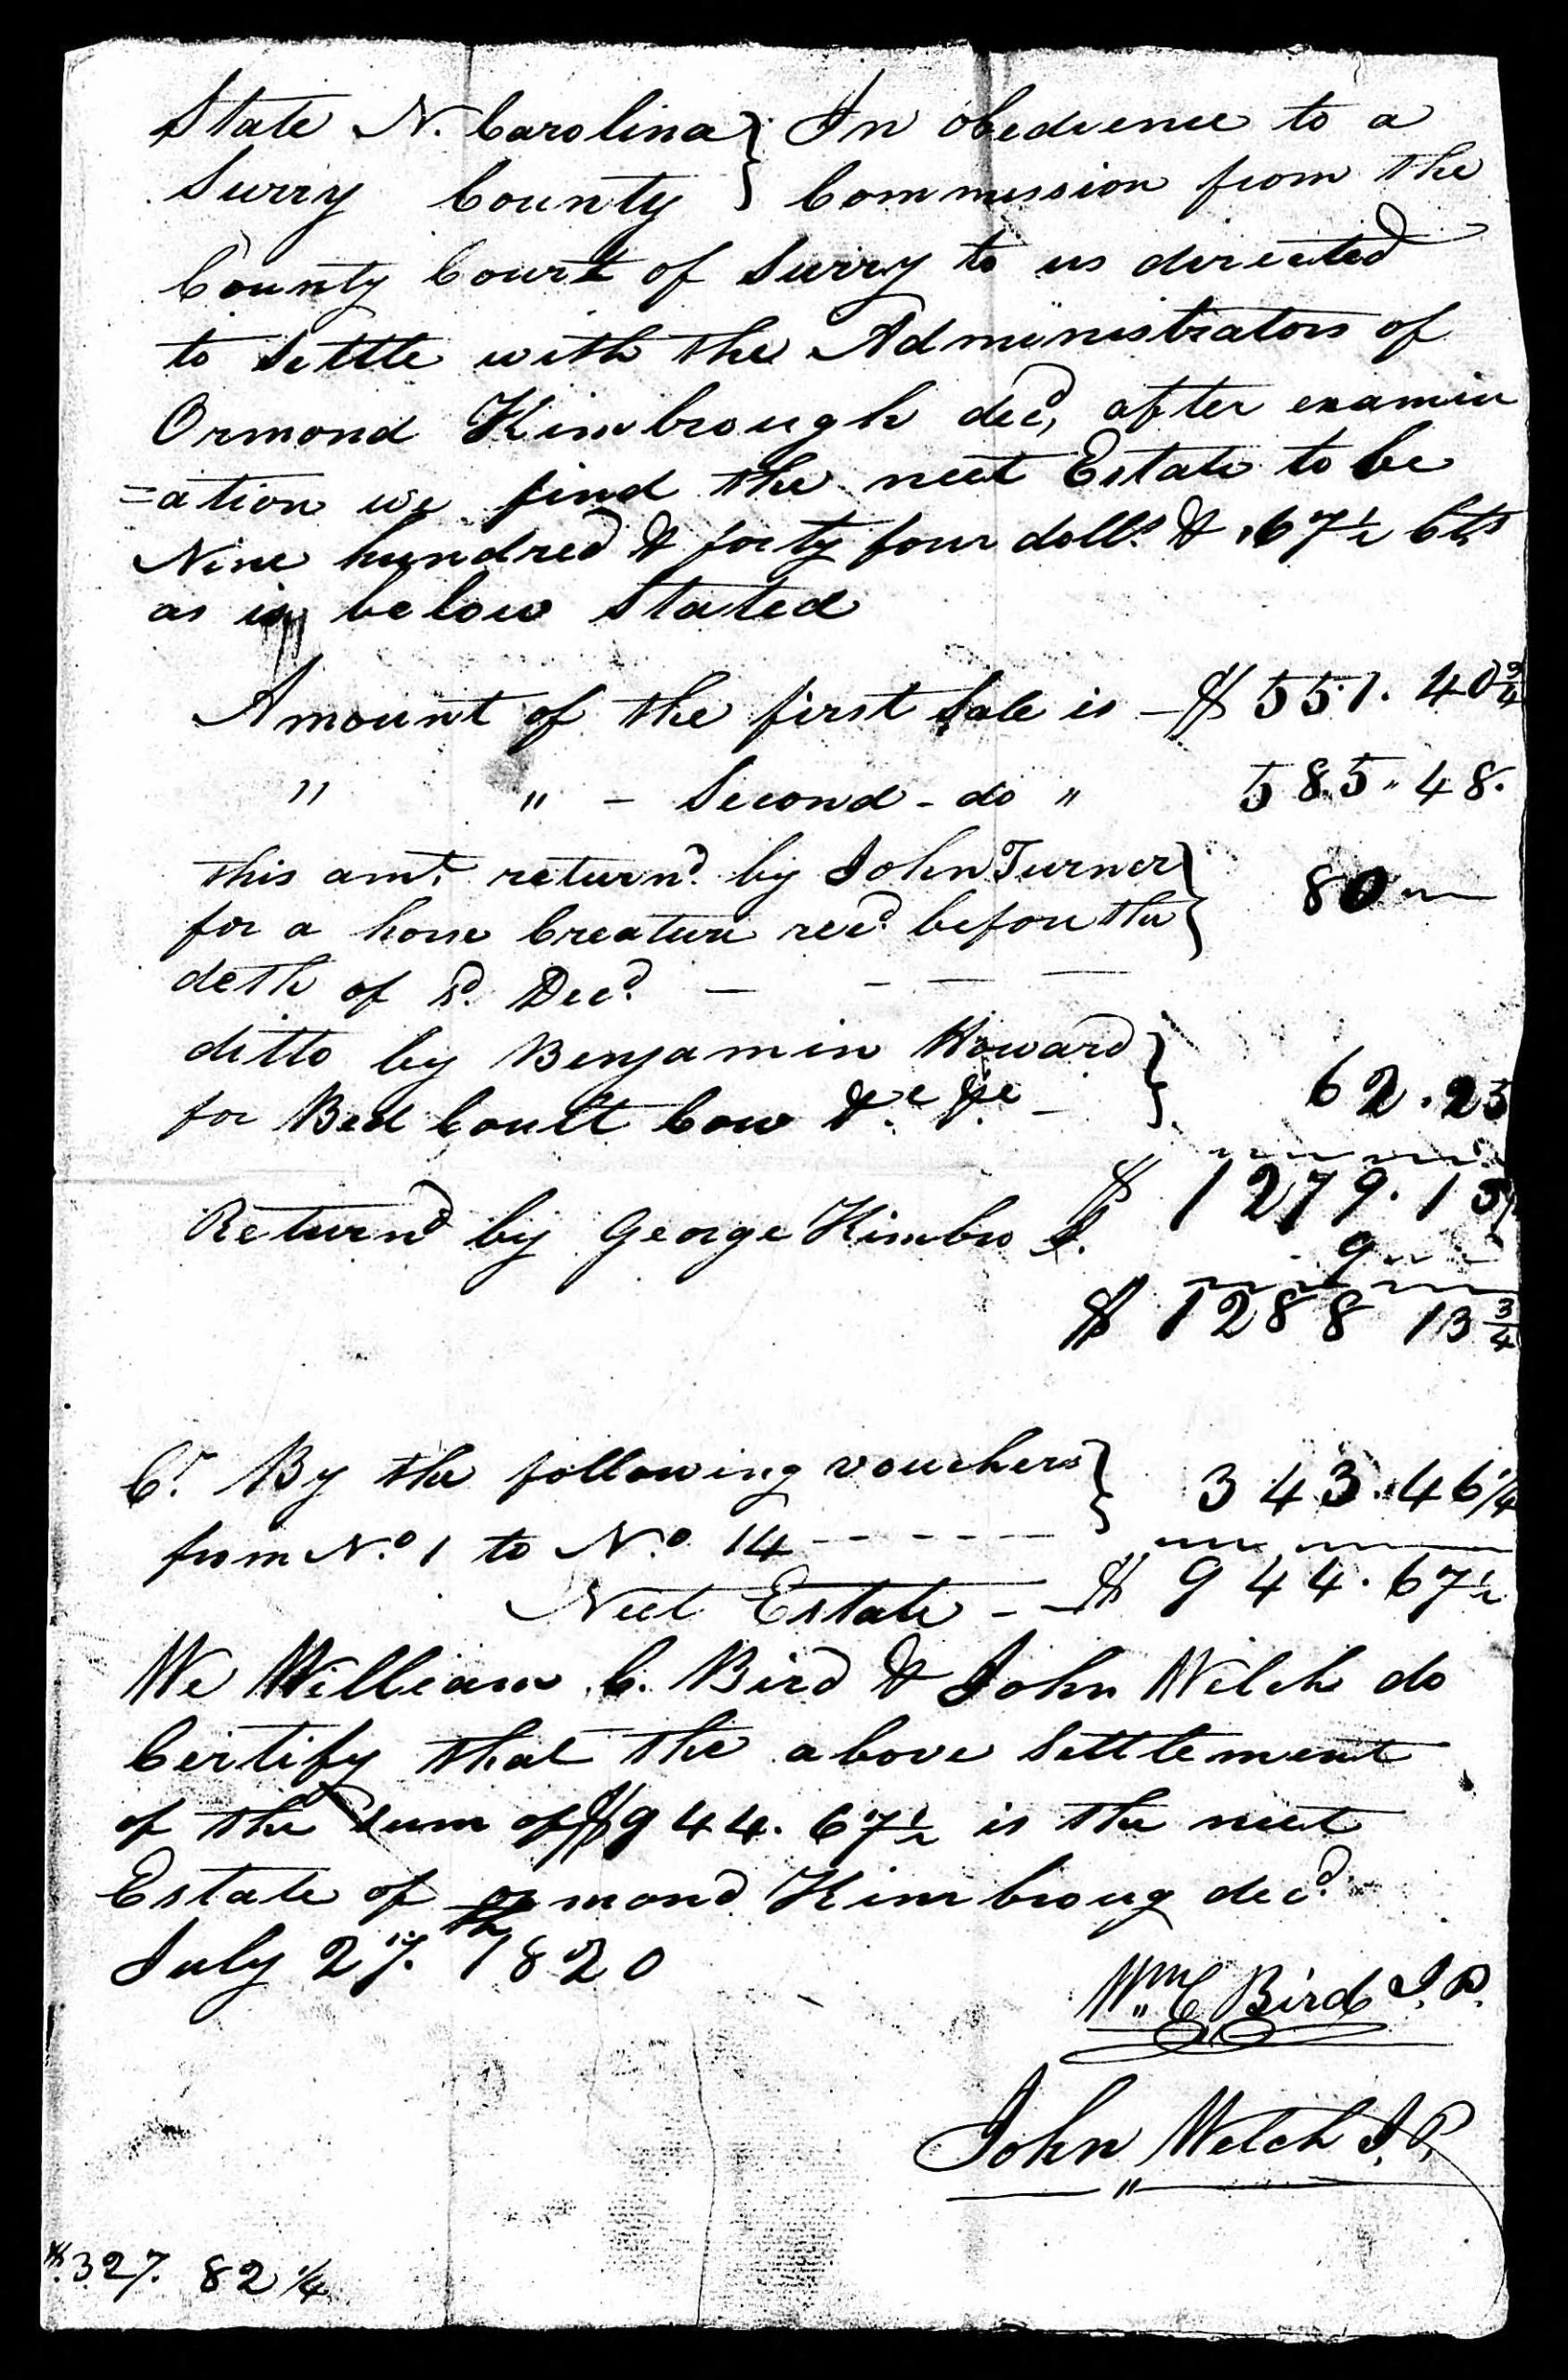 State N. Carolina } In obedience to a
Surry County } Commission from the
County Court of Surry to us directed
to settle with the Administrators of
Ormond Kimbrough decd, after examin
=ation we find the neet Estate to be
Nine hundred & forty four dolls. & .67½ Cts
as is below Stated
Amount of the first Sale is — $ 551. 40¾
" " - Second - do " 585. 48.
this amt. returnd. by John Turner }
for a horse Creature recd. before the } 80
deth of sd. Decd. — — — —
ditto by Benjamin Howard }
for Bed Coult Cow &c &c — } 62.25
$ 1279.13¾
Returnd by George Kimbro 9
$ 1288 13¾
Cr. By the following vouchers }
from No. 1 to No. 14 - - - - - } 343.46¼
Neet Estate - - $ 944.67½
We William C. Bird & John Welch do
Certify that the above Settlement
of the Sum of $944.67½ is the neet
Estate of ormond Kimbroug decd.
July 27th. 1820
Wm C Bird J.P.
John Welch J.P.
$.327. 82¼